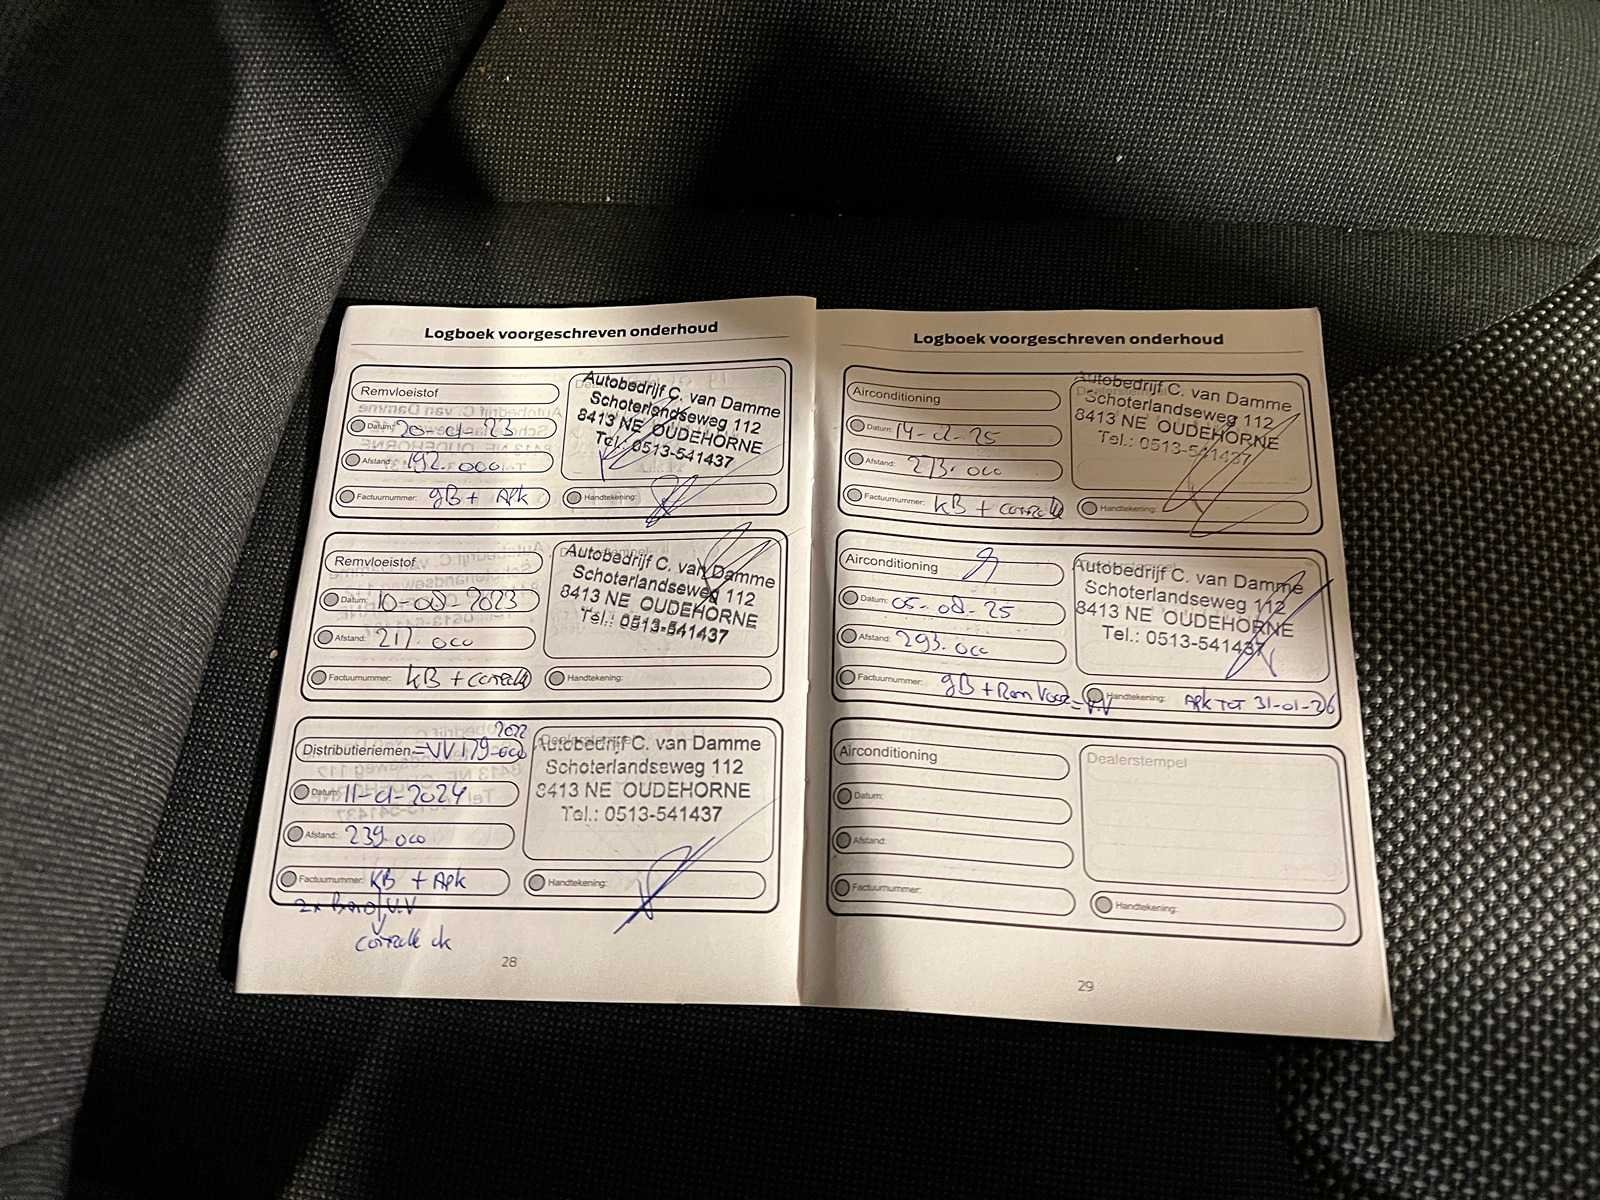 Logboek voorgeschreven onderhoud
Remvloeistof
Datum: 20-01-23
Afstand: 192.000
Factuurnummer: gB + APK
Autobedrijf C. van Damme
Schoterlandseweg 112
8413 NE OUDEHORNE
Tel.: 0513-541437
Handtekening:
Remvloeistof
Datum: 10-08-2023
Afstand: 217.000
Factuurnummer: kB + controle
Autobedrijf C. van Damme
Schoterlandseweg 112
8413 NE OUDEHORNE
Tel.: 0513-541437
Handtekening:
2022
Distributieriemen =VV 179-000
Datum: 11-01-2024
Afstand: 239.000
Factuurnummer: KB + APK
2x Band V.V
controle ok
Autobedrijf C. van Damme
Schoterlandseweg 112
8413 NE OUDEHORNE
Tel.: 0513-541437
Handtekening:
28
Logboek voorgeschreven onderhoud
Airconditioning
Datum: 14-02-25
Afstand: 273.000
Factuurnummer: kB + controle
Autobedrijf C. van Damme
Schoterlandseweg 112
8413 NE OUDEHORNE
Tel.: 0513-541437
Handtekening:
Airconditioning
Datum: 05-08-25
Afstand: 293.000
Factuurnummer: gB + Rem Voor = V.V
Autobedrijf C. van Damme
Schoterlandseweg 112
8413 NE OUDEHORNE
Tel.: 0513-541437
Handtekening: APK TOT 31-01-26
Airconditioning
Datum:
Afstand:
Factuurnummer:
Dealerstempel
Handtekening:
29